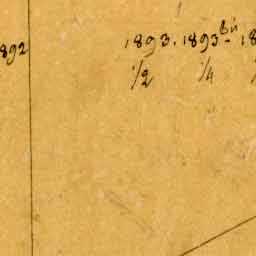 892
1893. 1893 - 18
1/2 1/4